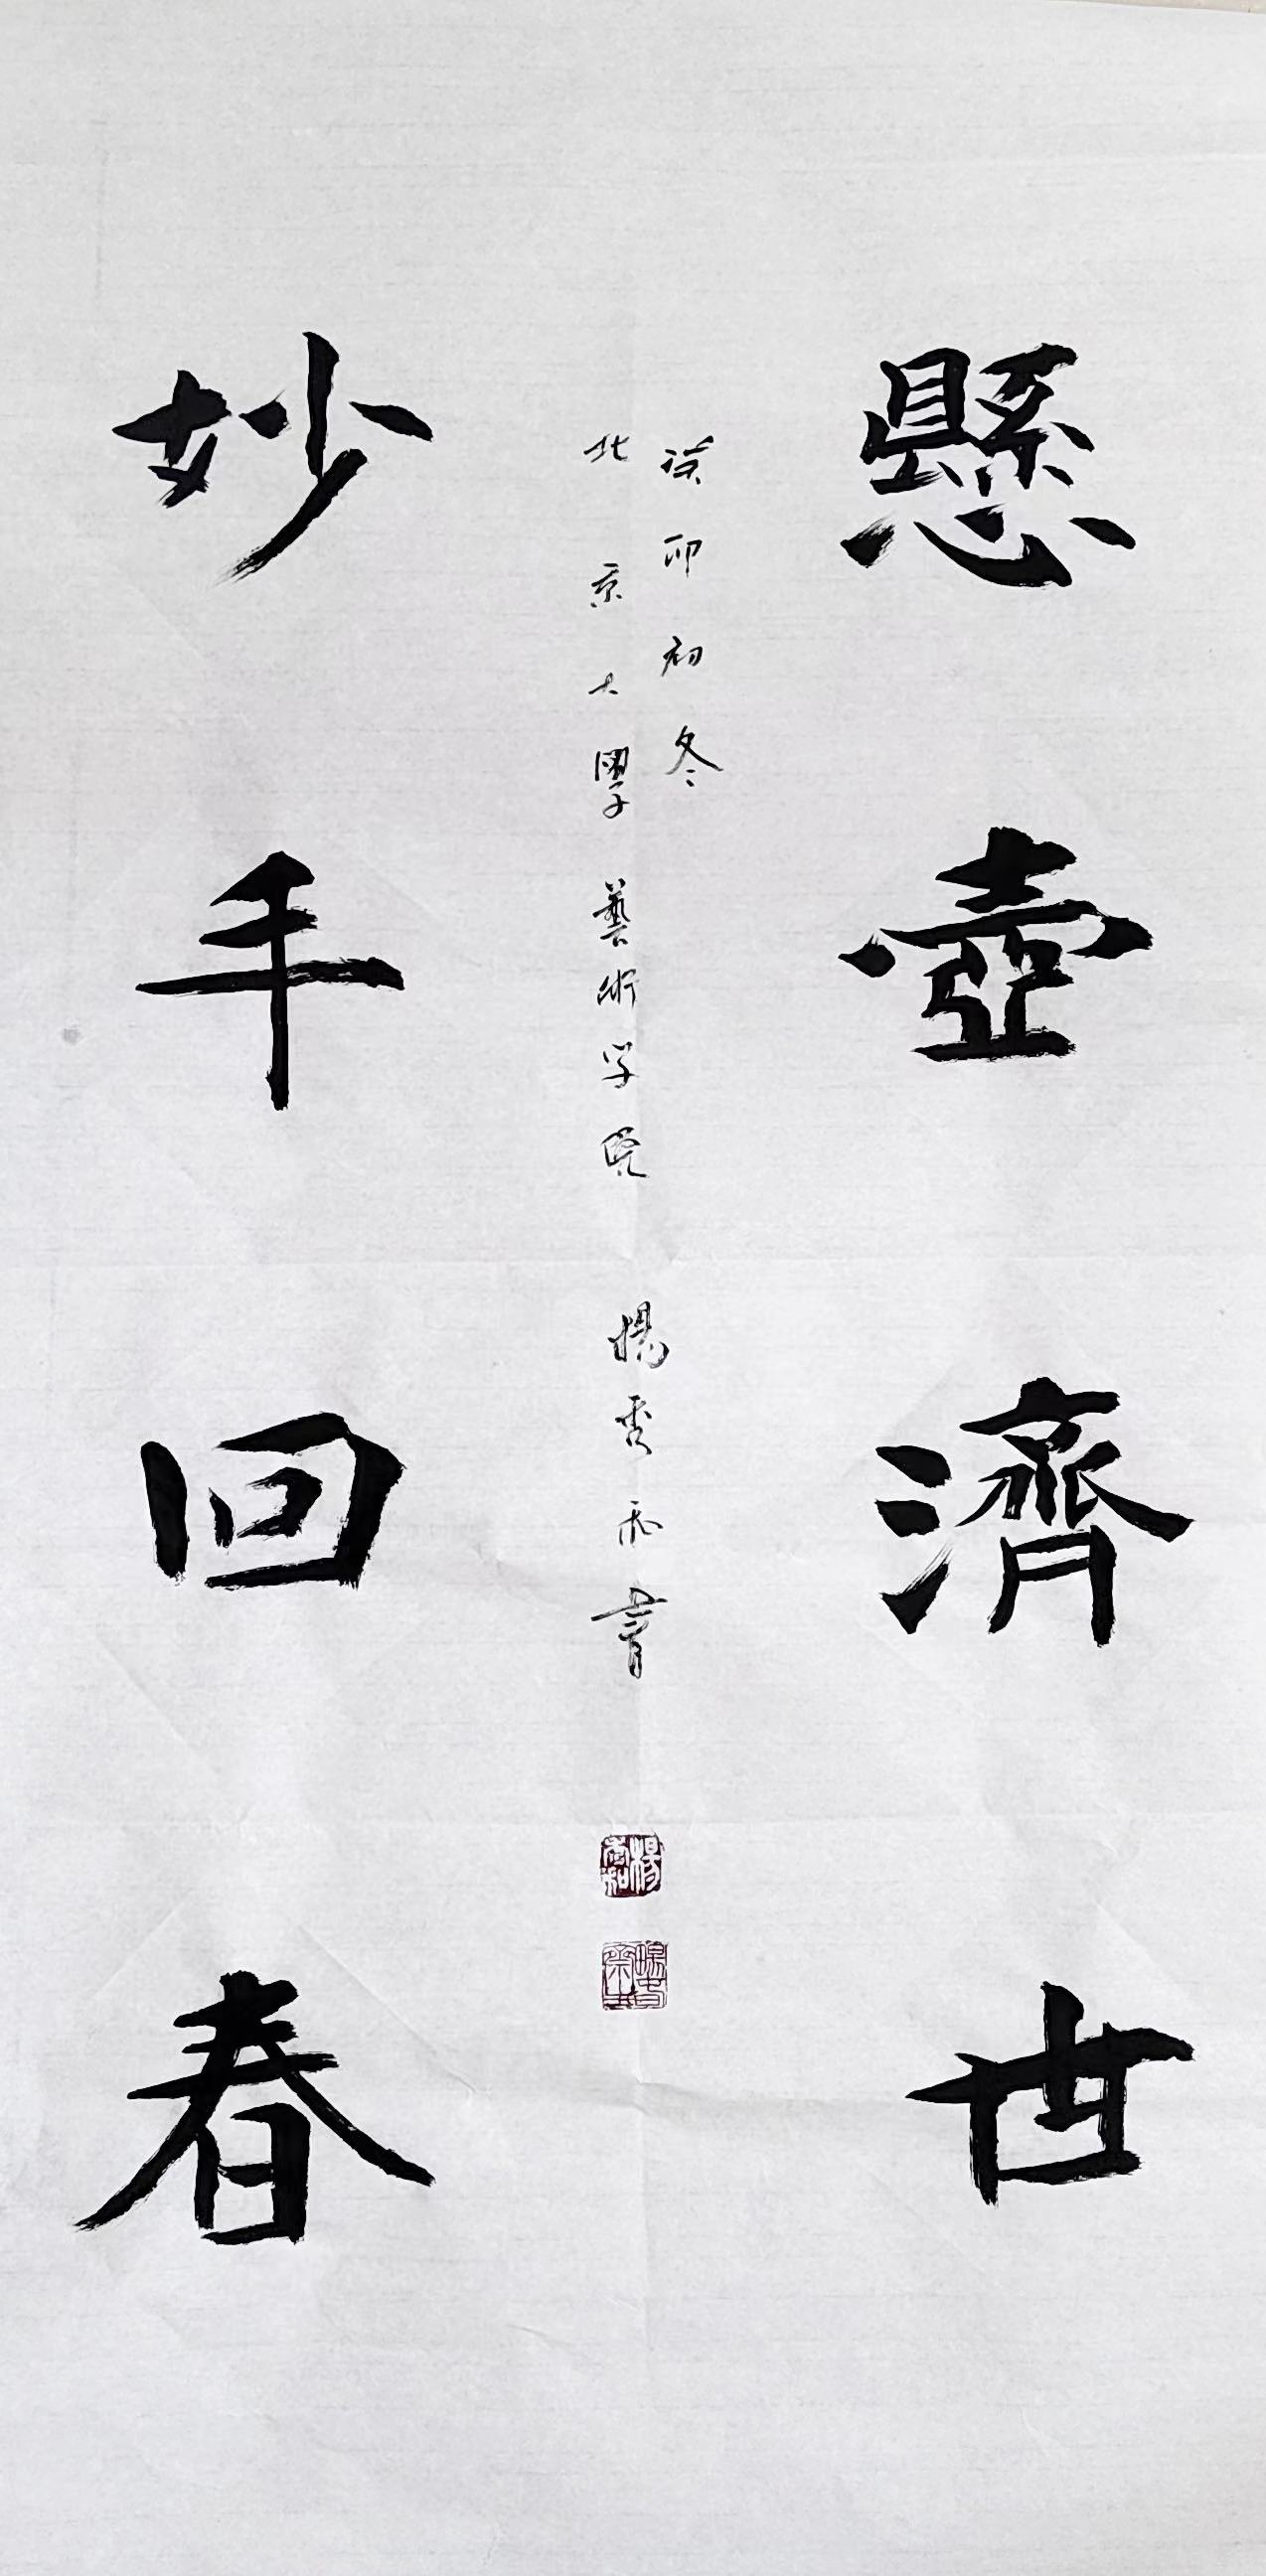 懸壺濟世
癸卯初冬
北京大學藝術学院
楊秀和書
妙手回春